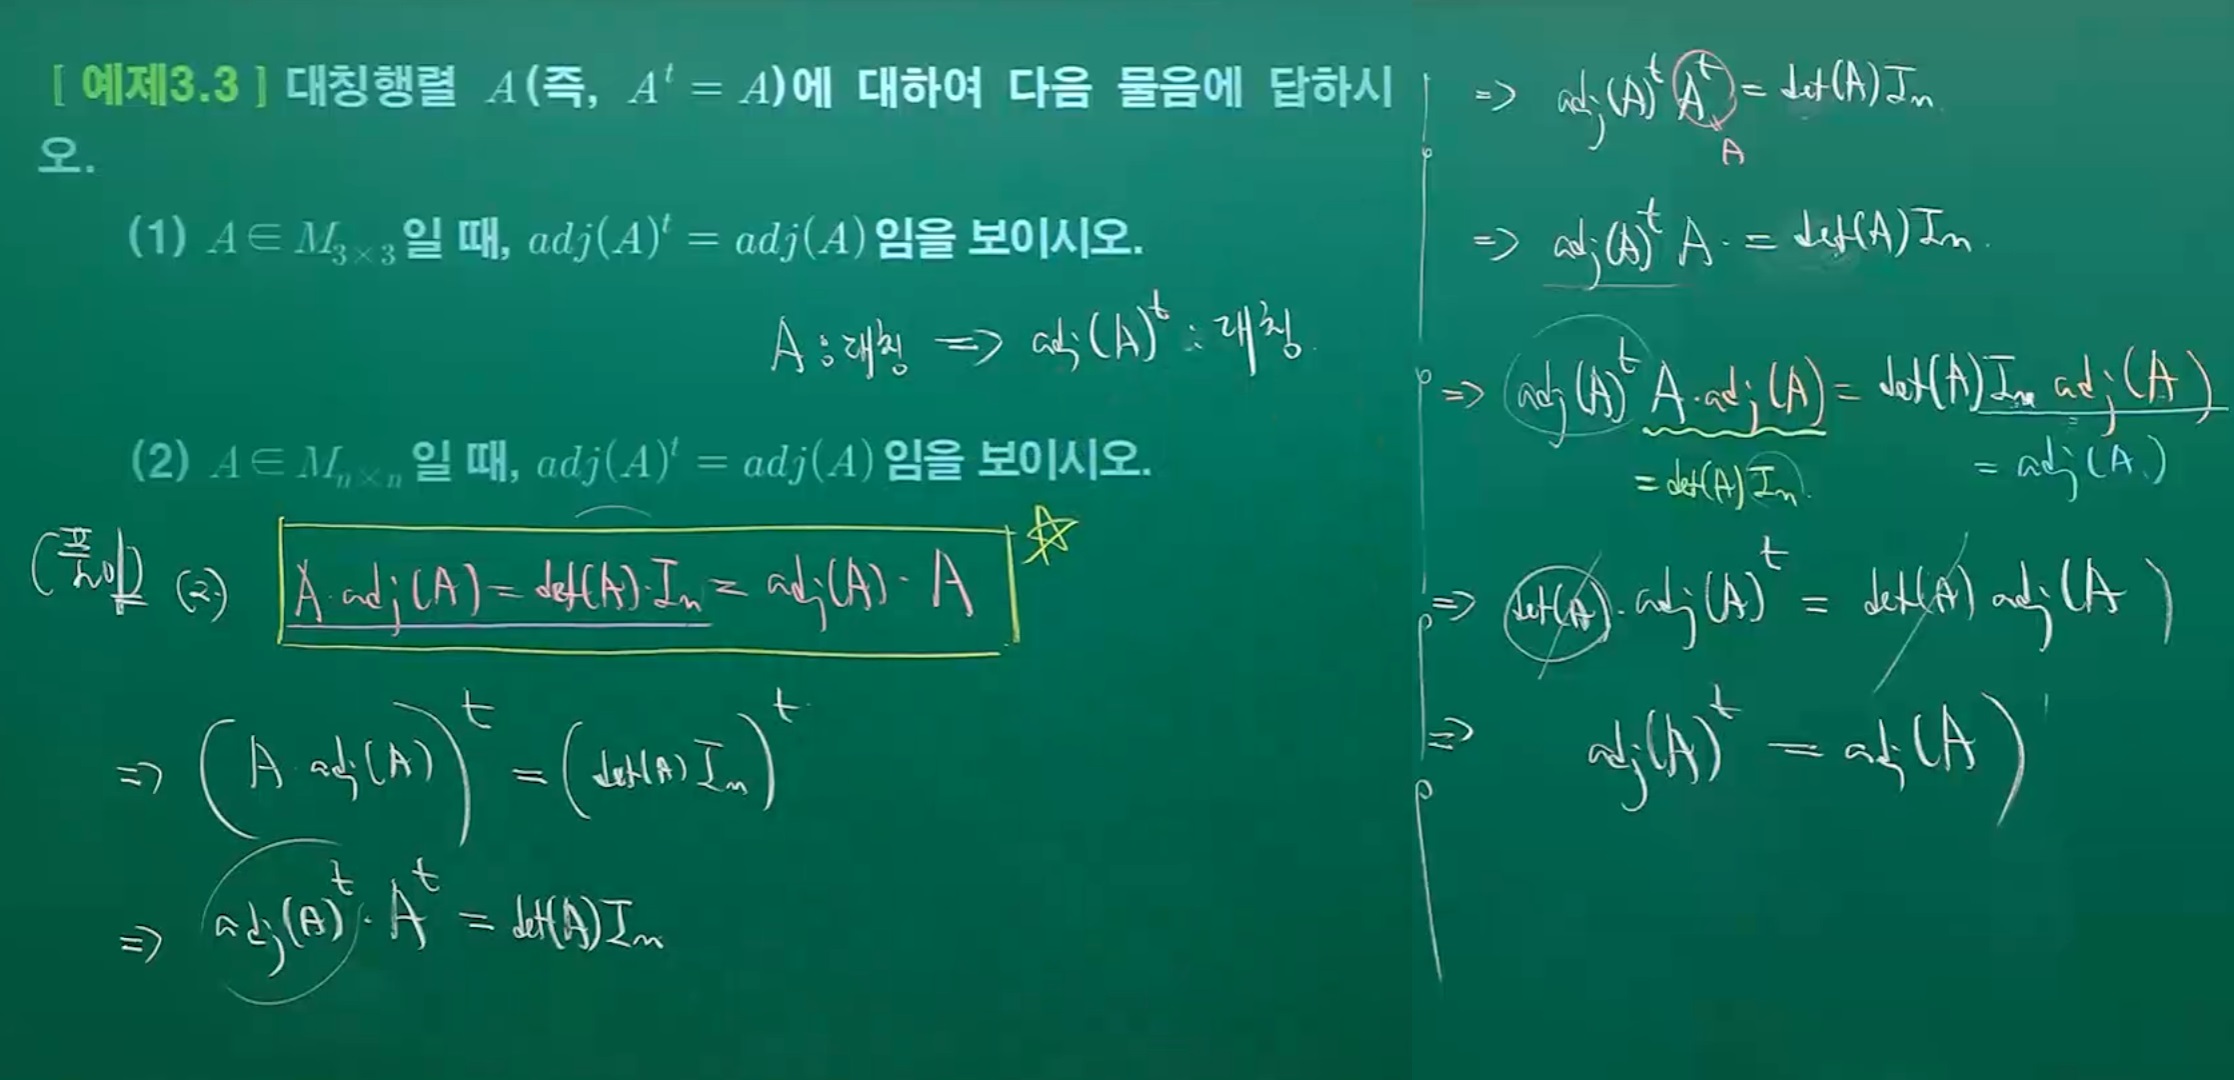 [ 예제3.3 ] 대칭행렬 A(즉, Aᵗ = A)에 대하여 다음 물음에 답하시
오.
(1) A∈M₃ₓ₃일 때, adj(A)ᵗ = adj(A)임을 보이시오.
A : 대칭 => adj(A)ᵗ : 대칭.
(2) A∈Mₙₓₙ일 때, adj(A)ᵗ = adj(A)임을 보이시오.
(풀이) (2) A·adj(A) = det(A)·Iₙ = adj(A)·A ☆
=> (A·adj(A))ᵗ = (det(A)Iₙ)ᵗ
=> adj(A)ᵗ·Aᵗ = det(A)Iₙ
=> adj(A)ᵗ Aᵗ = det(A)Iₙ
A
=> adj(A)ᵗ A· = det(A)Iₙ.
=> adj(A)ᵗ A·adj(A) = det(A)Iₙ adj(A)
= det(A)Iₙ. = adj(A)
=> det(A)·adj(A)ᵗ = det(A) adj(A)
=> adj(A)ᵗ = adj(A)